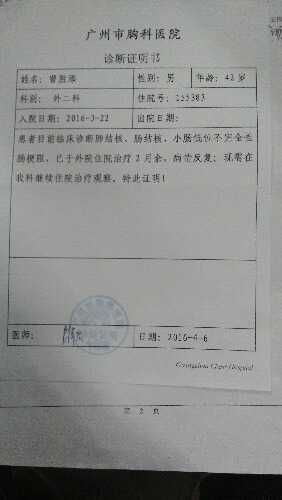 广州市胸科医院
诊断证明书
姓名: 曾胜添 性别: 男 年龄: 42 岁
科别: 外二科 住院号: 155383
入院日期: 2016-3-22 出院日期:
患者目前临床诊断肺结核、肠结核、小肠低位不完全性
肠梗阻。已于外院住院治疗2月余,病情反复;现需在
我科继续住院治疗观察。特此证明!
医师: 日期: 2016-4-6
Guangzhou Chest Hospital
第 2 页